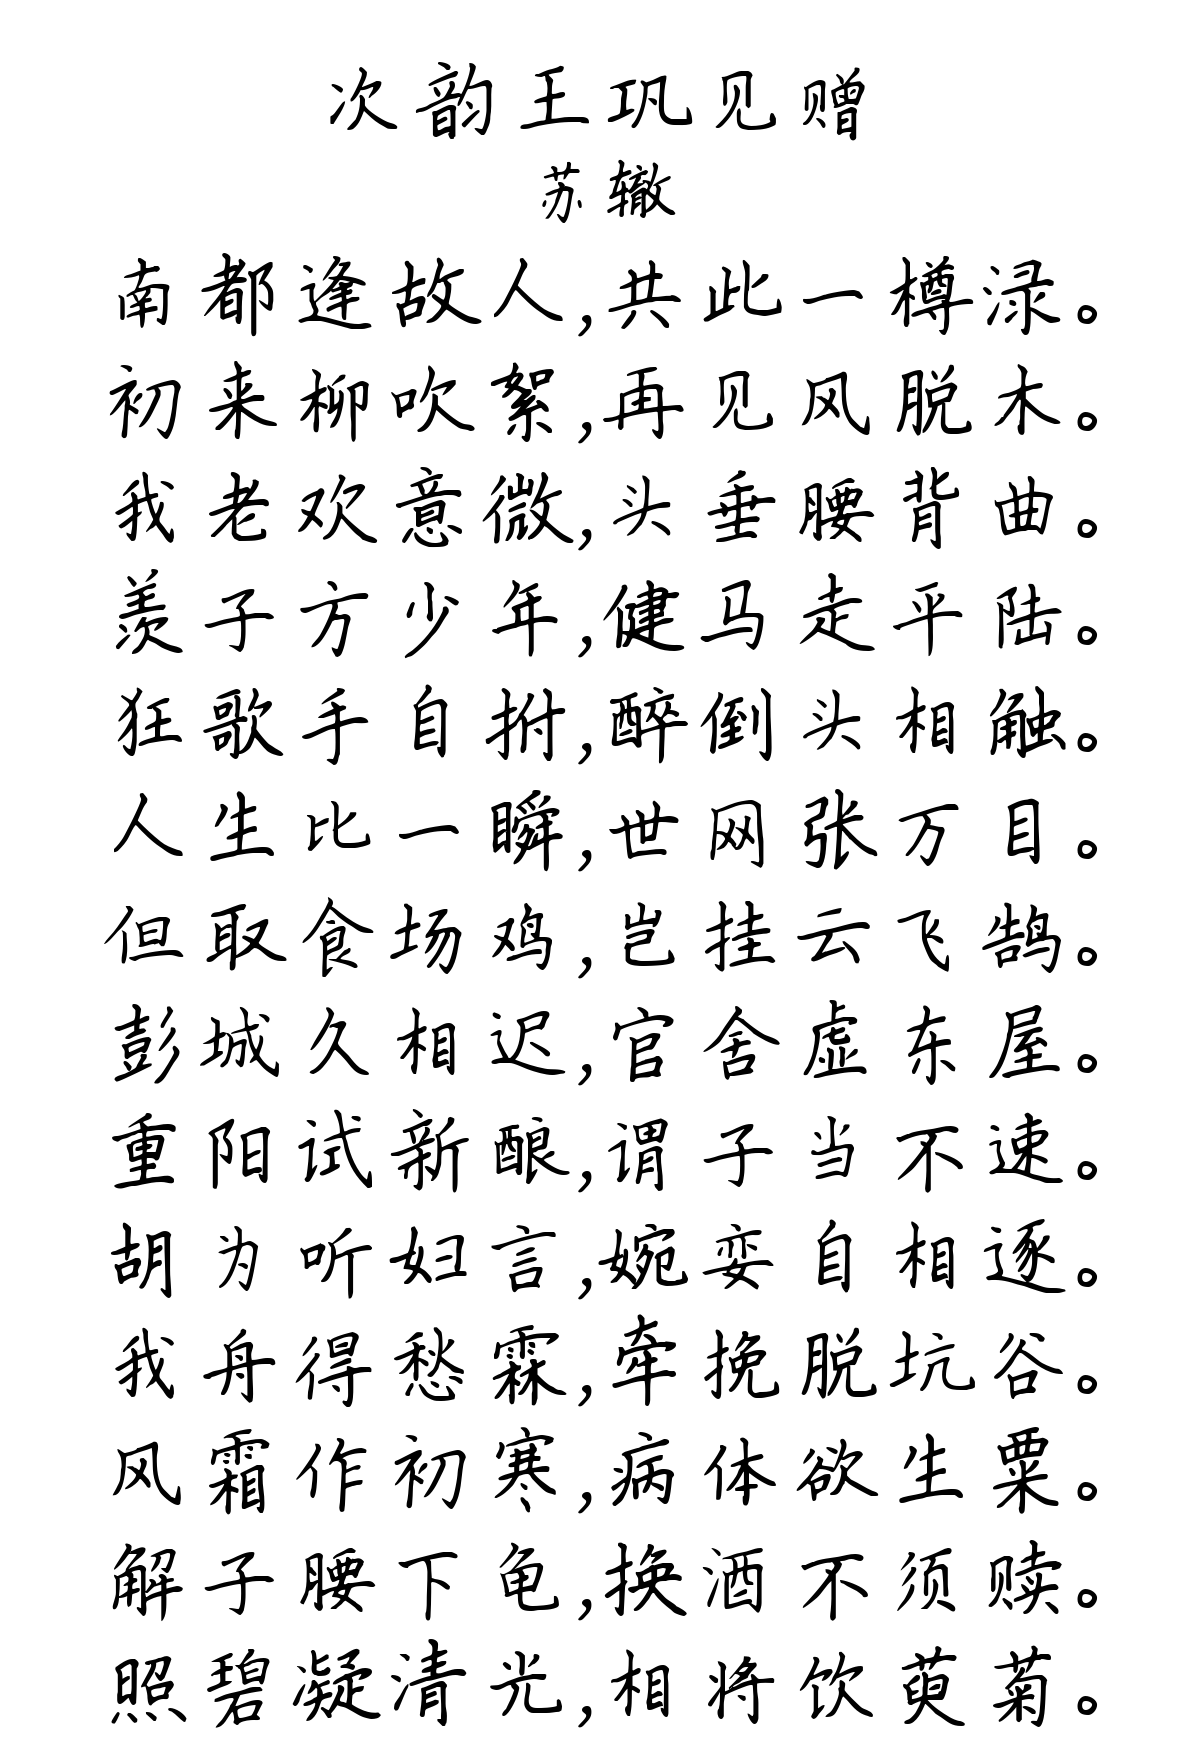 次韵王巩见赠
苏辙
南都逢故人,共此一樽渌。
初来柳吹絮,再见风脱木。
我老欢意微,头垂腰背曲。
羡子方少年,健马走平陆。
狂歌手自拊,醉倒头相触。
人生比一瞬,世网张万目。
但取食场鸡,岂挂云飞鹄。
彭城久相迟,官舍虚东屋。
重阳试新酿,谓子当不速。
胡为听妇言,婉娈自相逐。
我舟得愁霖,牵挽脱坑谷。
风霜作初寒,病体欲生粟。
解子腰下龟,换酒不须赎。
照碧凝清光,相将饮萸菊。